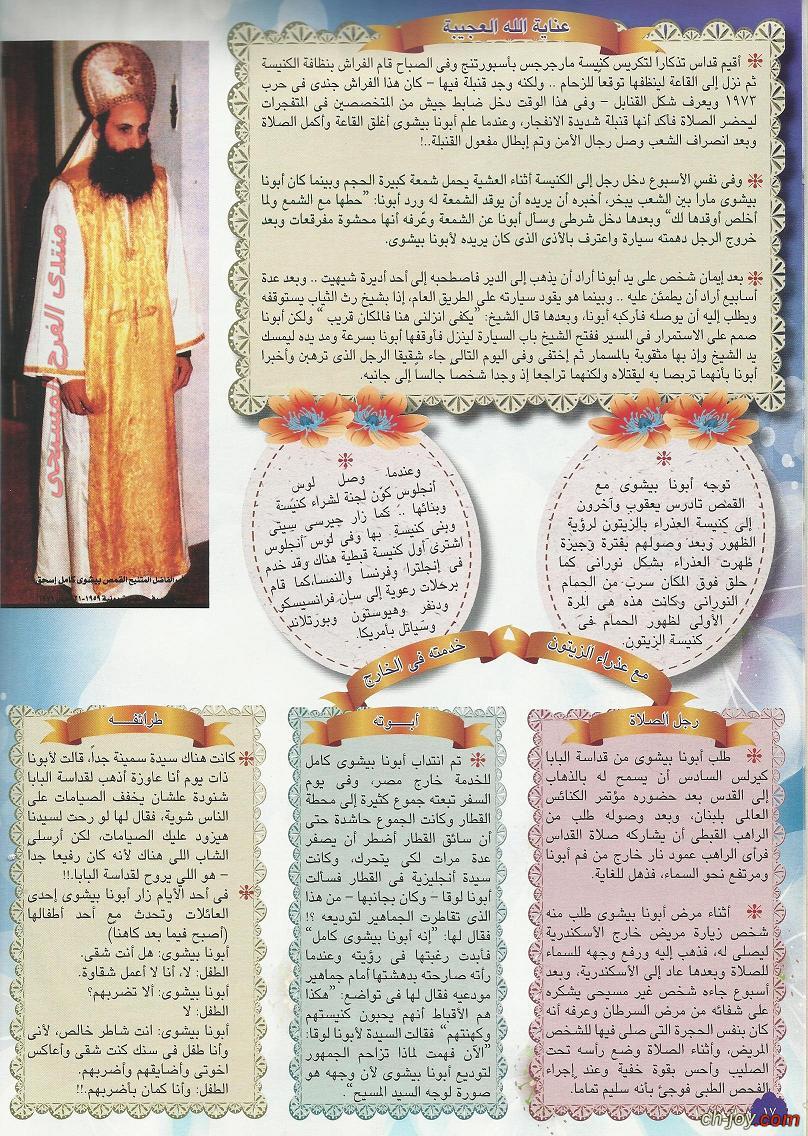 عناية الله العجيبة
أقيم قداس تذكارا لتكريس كنيسة مارجرجس بأسبورتنج وفى الصباح قام الفراش بنظافة الكنيسة
ثم نزل إلى القاعة لينظفها توقعاً للزحام .. ولكنه وجد قنبلة فيها – كان هذا الفراش جندى فى حرب
١٩٧٣ ويعرف شكل القنابل – وفى هذا الوقت دخل ضابط جيش من المتخصصين فى المتفجرات
ليحضر الصلاة فأكد أنها قنبلة شديدة الانفجار، وعندما علم أبونا بيشوى أغلق القاعة وأكمل الصلاة
وبعد انصراف الشعب وصل رجال الأمن وتم إبطال مفعول القنبلة..!
وفى نفس الأسبوع دخل رجل إلى الكنيسة أثناء العشية يحمل شمعة كبيرة الحجم وبينما كان أبونا
بيشوى ماراً بين الشعب يبخر، أخبره أن يريده أن يوقد الشمعة له ورد أبونا: "حطها مع الشمع ولما
أخلص أوقدها لك" وبعدها دخل شرطى وسأل أبونا عن الشمعة وعرّفه أنها محشوة مفرقعات وبعد
خروج الرجل دهمته سيارة واعترف بالأذى الذى كان يريده لأبونا بيشوى.
بعد إيمان شخص على يد أبونا أراد أن يذهب إلى الدير فاصطحبه إلى أحد أديرة شيهيت .. وبعد عدة
أسابيع أراد أن يطمئن عليه .. وبينما هو يقود سيارته على الطريق العام، إذا بشيخ رث الثياب يستوقفه
ويطلب إليه أن يوصله فأركبه أبونا، وبعدها قال الشيخ: "يكفى انزلنى هنا فالمكان قريب " ولكن أبونا
صمم على الاستمرار فى المسير ففتح الشيخ باب السيارة لينزل فأوقفها أبونا بسرعة ومد يده ليمسك
يد الشيخ وإذ بها مثقوبة بالمسمار ثم إختفى وفى اليوم التالى جاء شقيقا الرجل الذى ترهبن وأخبرا
أبونا بأنهما تربصا به ليقتلاه ولكنهما تراجعا إذ وجدا شخصاً جالساً إلى جانبه.
منتدى الفرح المسيحى
الفاضل المتنيح القمص بيشوى كامل إسحق
توجه أبونا بيشوى مع
القمص تادرس يعقوب وآخرون
إلى كنيسة العذراء بالزيتون لرؤية
الظهور وبعد وصولهم بفترة وجيزة
ظهرت العذراء بشكل نورانى كما
حلق فوق المكان سرب من الحمام
النورانى وكانت هذه هى المرة
الأولى لظهور الحمام فى
كنيسة الزيتون.
مع عذراء الزيتون
وعندما وصل لوس
أنجلوس كوّن لجنة لشراء كنيسة
وبنائها .. كما زار جيرسى سيتى
وبنى كنيسة بها وفى لوس أنجلوس
اشترى أول كنيسة قبطية هناك وقد خدم
فى إنجلترا وفرنسا والنمسا،كما قام
برحلات رعوية إلى سان فرانسيسكو
ودنفر وهيوستون وبورتلاند
وسياتل بأمريكا.
خدمته فى الخارج
رجل الصلاة
طلب أبونا بيشوى من قداسة البابا
كيرلس السادس أن يسمح له بالذهاب
إلى القدس بعد حضوره مؤتمر الكنائس
العالمى بلبنان، وبعد وصوله طلب من
الراهب القبطى أن يشاركه صلاة القداس
فرأى الراهب عمود نار خارج من فم أبونا
ومرتفع نحو السماء، فذهل للغاية.
أثناء مرض أبونا بيشوى طلب منه
شخص زيارة مريض خارج الأسكندرية
ليصلى له، فذهب إليه ورفع وجهه للسماء
للصلاة وبعدها عاد إلى الأسكندرية، وبعد
أسبوع جاءه شخص غير مسيحى يشكره
على شفائه من مرض السرطان وعرفه أنه
كان بنفس الحجرة التى صلى فيها للشخص
المريض، وأثناء الصلاة وضع رأسه تحت
الصليب وأحس بقوة خفية وعند إجراء
الفحص الطبى فوجئ بأنه سليم تماما.
أبـــوته
تم انتداب أبونا بيشوى كامل
للخدمة خارج مصر، وفى يوم
السفر تبعته جموع كثيرة إلى محطة
القطار وكانت الجموع حاشدة حتى
أن سائق القطار أضطر أن يصفر
عدة مرات لكى يتحرك، وكانت
سيدة أنجليزية فى القطار فسألت
أبونا لوقا – وكان بجانبها – من هذا
الذى تقاطرت الجماهير لتوديعه ؟!
فقال لها: "إنه أبونا بيشوى كامل"
فأبدت رغبتها فى رؤيته وعندما
رأته صارحته بدهشتها أمام جماهير
مودعيه فقال لها فى تواضع: "هكذا
هم الأقباط أنهم يحبون كنيستهم
وكهنتهم" فقالت السيدة لأبونا لوقا:
"الآن فهمت لماذا تزاحم الجمهور
لتوديع أبونا بيشوى لأن وجهه هو
صورة لوجه السيد المسيح".
طرائفـــه
كانت هناك سيدة سمينة جداً، قالت لأبونا
ذات يوم أنا عاوزة أذهب لقداسة البابا
شنودة علشان يخفف الصيامات على
الناس شوية، فقال لها لو رحت لسيدنا
هيزود عليك الصيامات، لكن أرسلى
الشاب اللى هناك لأنه كان رفيعاً جداً
– هو اللي يروح لقداسة البابا.!!
فى أحد الأيام زار أبونا بيشوى إحدى
العائلات وتحدث مع أحد أطفالها
(أصبح فيما بعد كاهنا)
أبونا بيشوى: هل أنت شقى.
الطفل: لا، أنا لا أعمل شقاوة.
أبونا بيشوى: ألا تضربهم؟
الطفل: لا
أبونا بيشوى: انت شاطر خالص، لأنى
وأنا طفل فى سنك كنت شقى وأعاكس
اخوتى وأضايقهم وأضربهم.
الطفل: وأنا كمان بأضربهم.!!
١٧
ch-joy.com